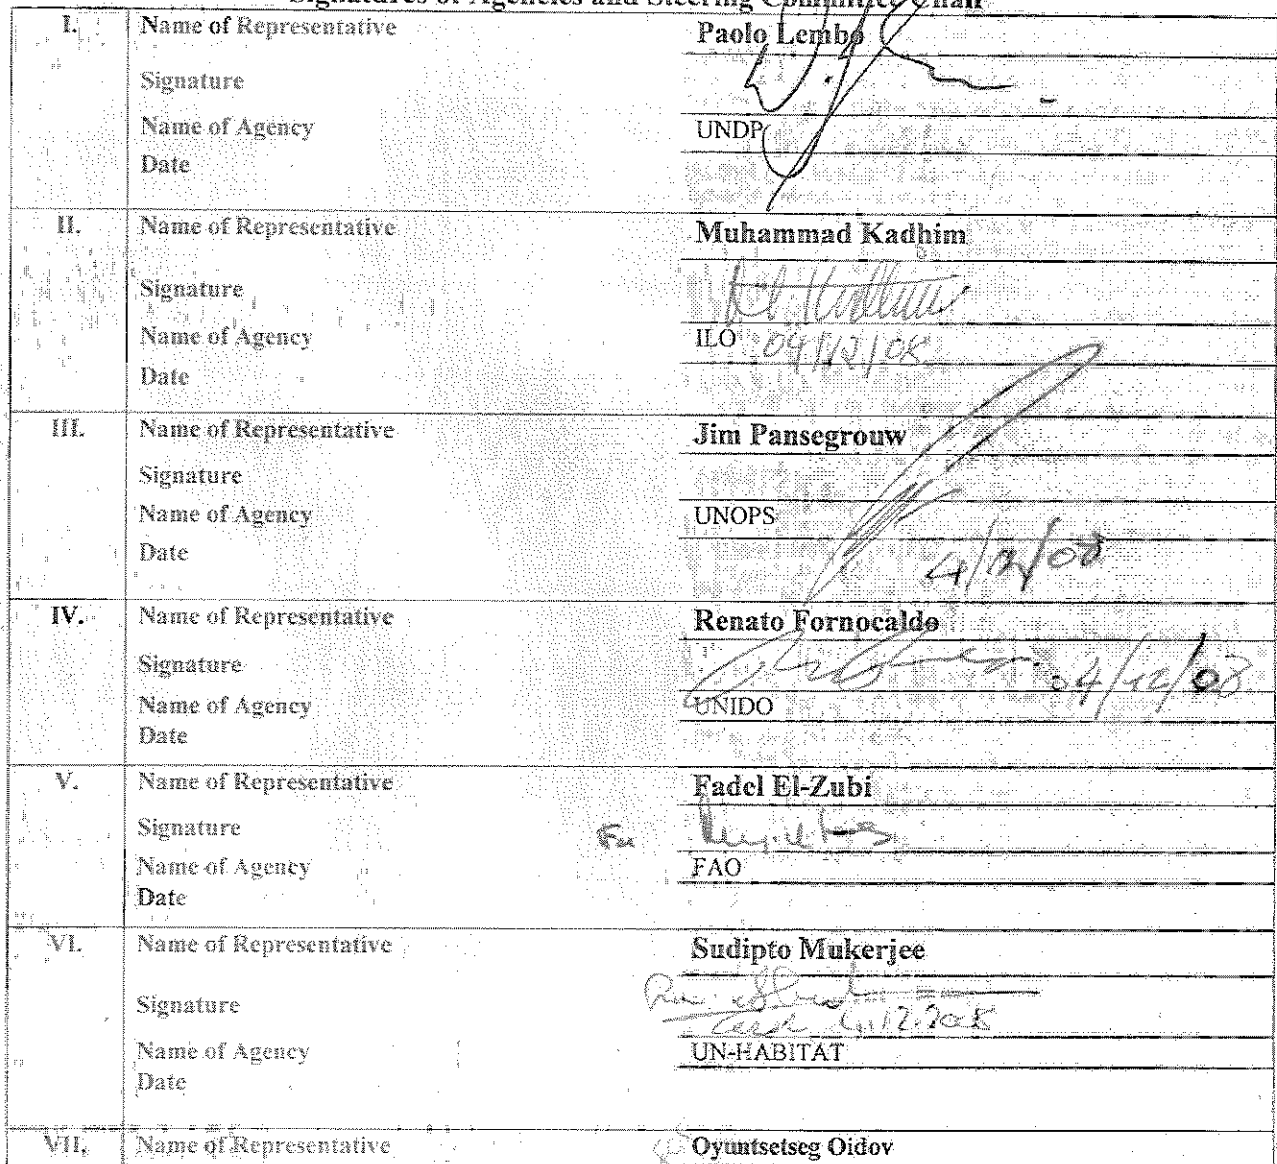 Signatures of Agencies and Steering Committee Chair
I. Name of Representative Paolo Lembo
Signature
Name of Agency UNDP
Date
II. Name of Representative Muhammad Kadhim
Signature
Name of Agency ILO 04/12/08
Date
III. Name of Representative Jim Pansegrouw
Signature
Name of Agency UNOPS
Date 4/12/08
IV. Name of Representative Renato Fornocaldo
Signature 04/12/08
Name of Agency UNIDO
Date
V. Name of Representative Fadel El-Zubi
Signature
Name of Agency FAO
Date
VI. Name of Representative Sudipto Mukerjee
Signature 4.12.2008
Name of Agency UN-HABITAT
Date
VII. Name of Representative Oyuntsetseg Oidov